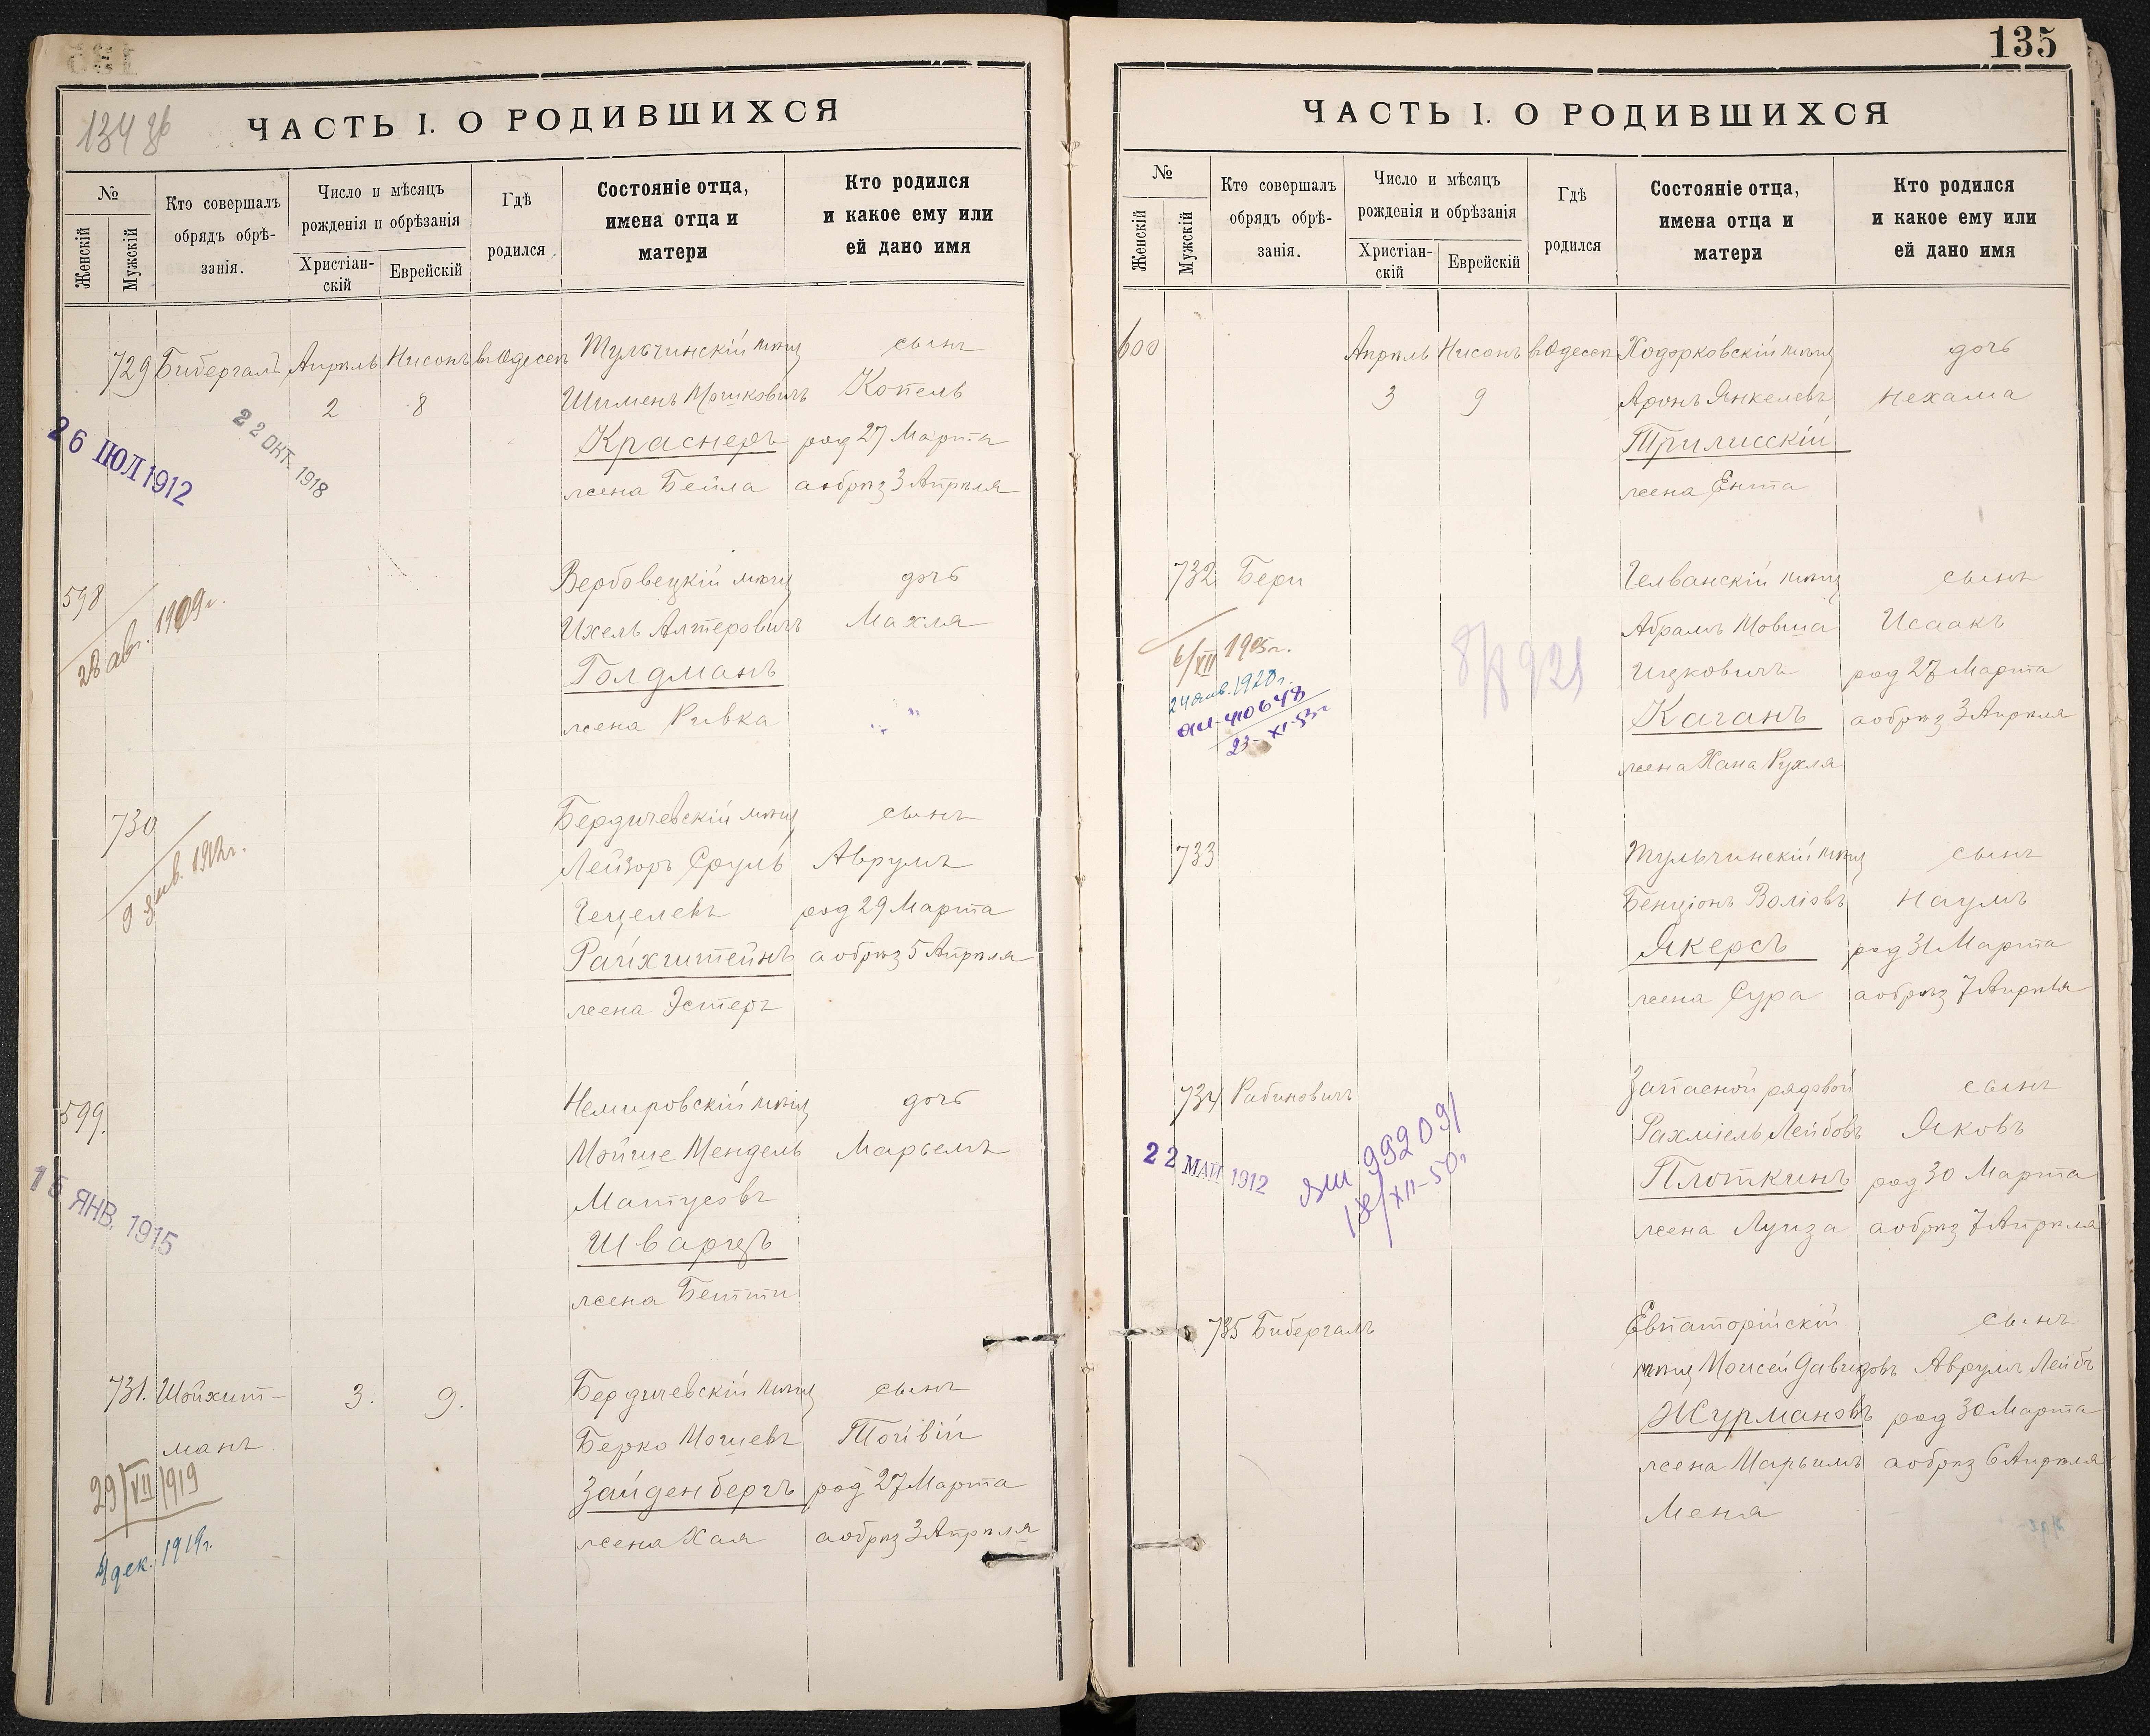 134 об
ЧАСТЬ I. О РОДИВШИХСЯ
№
Женскій
Мужскій
Кто совершалъ
обрядъ обрѣ-
занія.
Число и мѣсяцъ
рожденія и обрѣзанія
Христіан-
скій
Еврейскій
Гдѣ
родился
Состояніе отца,
имена отца и
матери
Кто родился
и какое ему или
ей дано имя
729 Бибергалъ Апрѣль Нисонъ въ Одессѣ Тульчинскій мѣщ сынъ
2 8 Шименъ Мошковичъ Копель
Краснеръ род 27 Марта
жена Бейла а обрѣз 3 Апрѣля
26 ІЮЛ 1912
22 ОКТ. 1918
598 Вербовецкій мѣщ дочь
Ихель Алтеровичъ Махля
Голдманъ
жена Ривка
28 авг. 1909 г.
730 Бердичевскій мѣщ сынъ
Лейзоръ Сруль Аврумъ
Гецелевъ род 29 Марта
Райхштейнъ а обрѣз 5 Апрѣля
жена Эстеръ
9 янв. 1912 г.
599. Немировскій мѣщ дочь
Мойше Мендель Марьемъ
Матусовъ
Шварцъ
жена Бетти
15 ЯНВ. 1915
731. Шойхит- 3. 9. Бердичевскій мѣщ сынъ
манъ Берко Мошевъ Тойвій
Зайденбергъ род 27 Марта
жена Хая а обрѣз 3 Апрѣля
29/VII 1919
4 дек. 1919 г.
135
ЧАСТЬ I. О РОДИВШИХСЯ
№
Женскій
Мужскій
Кто совершалъ
обрядъ обрѣ-
занія.
Число и мѣсяцъ
рожденія и обрѣзанія
Христіан-
скій
Еврейскій
Гдѣ
родился
Состояніе отца,
имена отца и
матери
Кто родился
и какое ему или
ей дано имя
600 Апрѣль Нисонъ въ Одессѣ Ходорковскій мѣщ дочь
3 9 Аронъ Янкелевъ Нехама
Трилисскій
жена Ента
732 Бери Гелванскій мѣщ сынъ
Абрамъ Мовша Исаакъ
Ицковичъ род 27 Марта
Каганъ а обрѣз 3 Апрѣля
жена Хана Рухля
6/XII 1905 г.
24 янв. 1920 г.
410648
23-XI-53 г
733 Тульчинскій мѣщ сынъ
Бенціонъ Воліовъ Наумъ
Якерсъ род 31 Марта
жена Сура а обрѣз 7 Апрѣля
734 Рабиновичъ Запасной рядовой сынъ
Рахміель Лейбовъ Яковъ
Плоткинъ род 30 Марта
жена Луиза а обрѣз 7 Апрѣля
22 МАЙ 1912
992091
18/XII-50 г
735 Бибергалъ Евпаторійскій сынъ
мѣщ Моисей Давидовъ Аврумъ Лейбъ
Журмановъ род 30 Марта
жена Марьимъ а обрѣз 6 Апрѣля
Мена